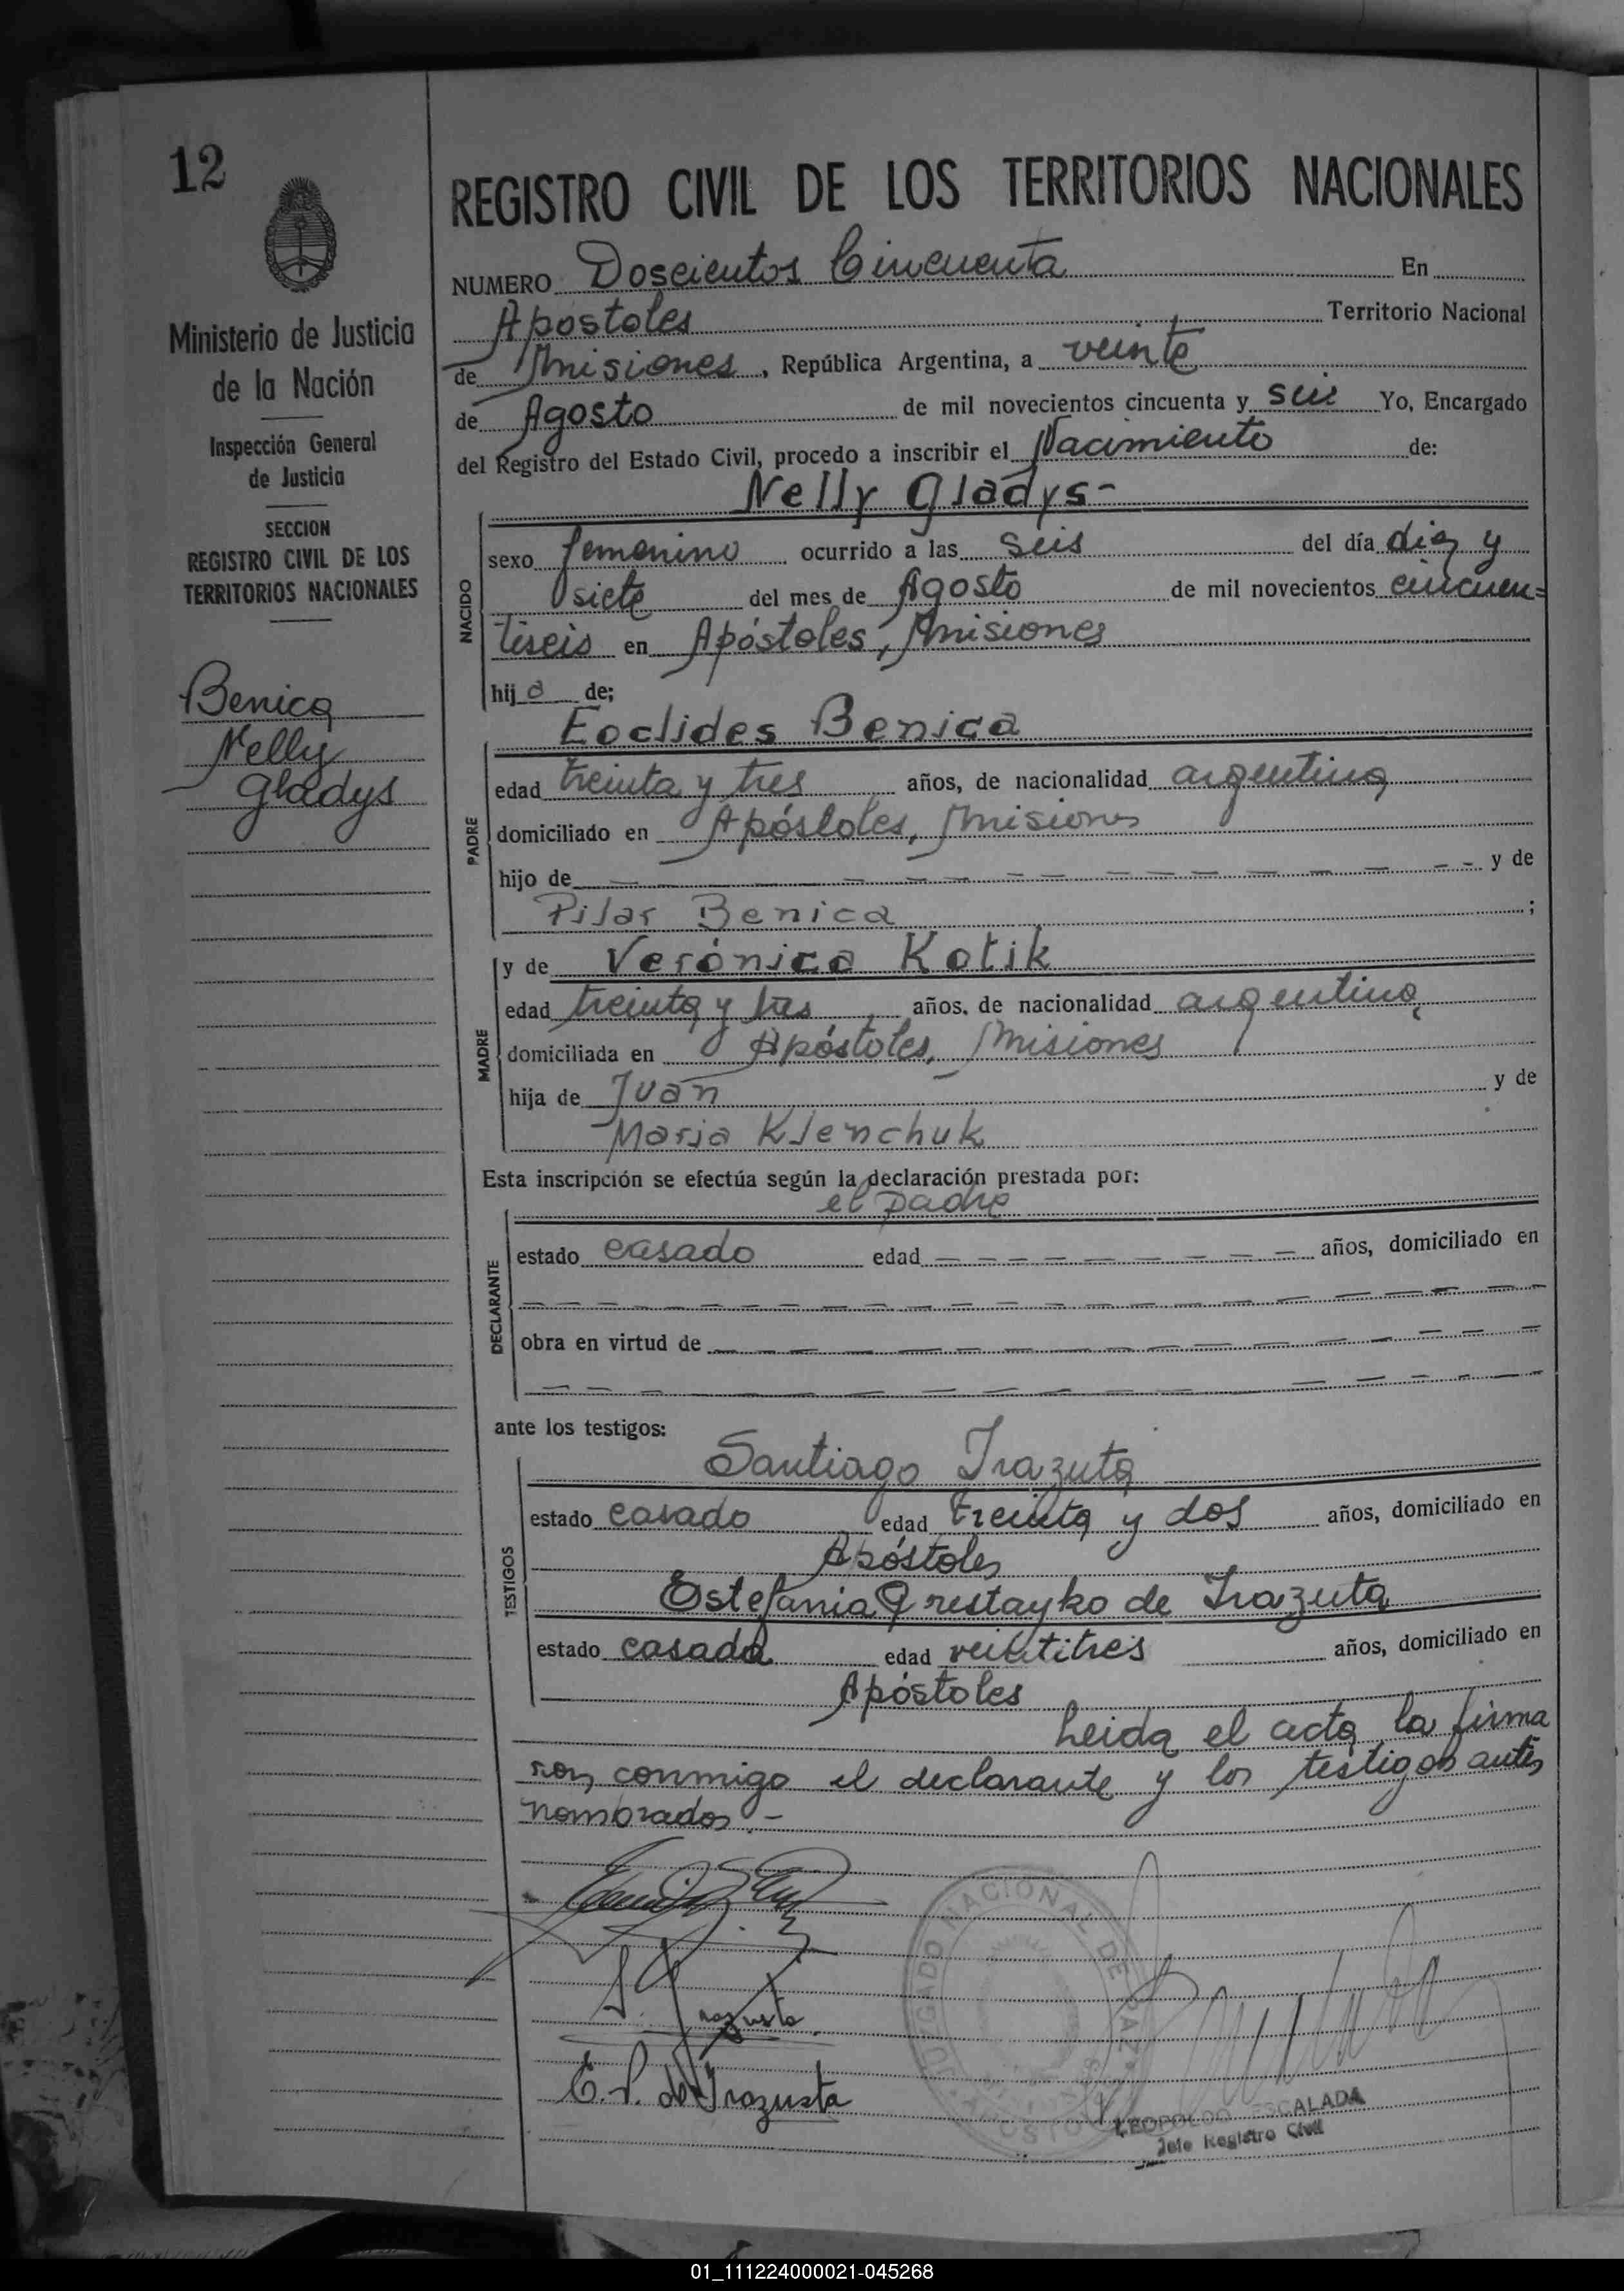 12
Ministerio de Justicia
de la Nación
Inspección General
de Justicia
SECCION
REGISTRO CIVIL DE LOS
TERRITORIOS NACIONALES
Benica
Nelly
Gladys
REGISTRO CIVIL DE LOS TERRITORIOS NACIONALES
NUMERO Doscientos Cincuenta En
Apostoles Territorio Nacional
de Misiones, República Argentina, a veinte
de Agosto de mil novecientos cincuenta y seis Yo, Encargado
del Registro del Estado Civil, procedo a inscribir el Nacimiento de:
Nelly Gladys-
NACIDO
sexo femenino ocurrido a las seis del día diez y
siete del mes de Agosto de mil novecientos cincuen=
tiseis en Apóstoles, Misiones
hija de;
Eoclides Benica
PADRE
edad treinta y tres años, de nacionalidad argentina
domiciliado en Apóstoles, Misiones
hijo de y de
Pilar Benica ;
y de Verónica Kotik
MADRE
edad treinta y tres años, de nacionalidad argentina
domiciliada en Apóstoles, Misiones
hija de Juan y de
Maria Klenchuk
Esta inscripción se efectúa según la declaración prestada por:
el padre
DECLARANTE
estado casado edad años, domiciliado en
obra en virtud de
ante los testigos:
Santiago Irazuta
TESTIGOS
estado casado edad treinta y dos años, domiciliado en
Apóstoles
Estefania de Irazuta
estado casada edad veintitres años, domiciliado en
Apóstoles
Leida el acta la firma
ron conmigo el declarante y los testigos antes
nombrados.-
Irazusta
E. P. de Irazusta
NACIONAL DE PAZ
LEOPOLDO ESCALADA
Jefe Registro Civil
01_111224000021-045268